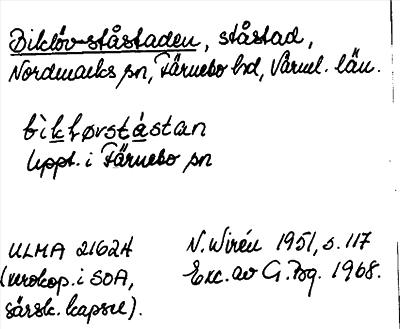 Biklövståstaden, ståstad,
Nordmarks sn, Färnebo hd, Värml. län.
bìkłøvstástan
Uppt. i Färnebo sn
ULMA 21624
(xerokop. i SOA,
särsk. kapsel).
N. Wirén 1951, s. 117
Exc. av G. Bg. 1968.